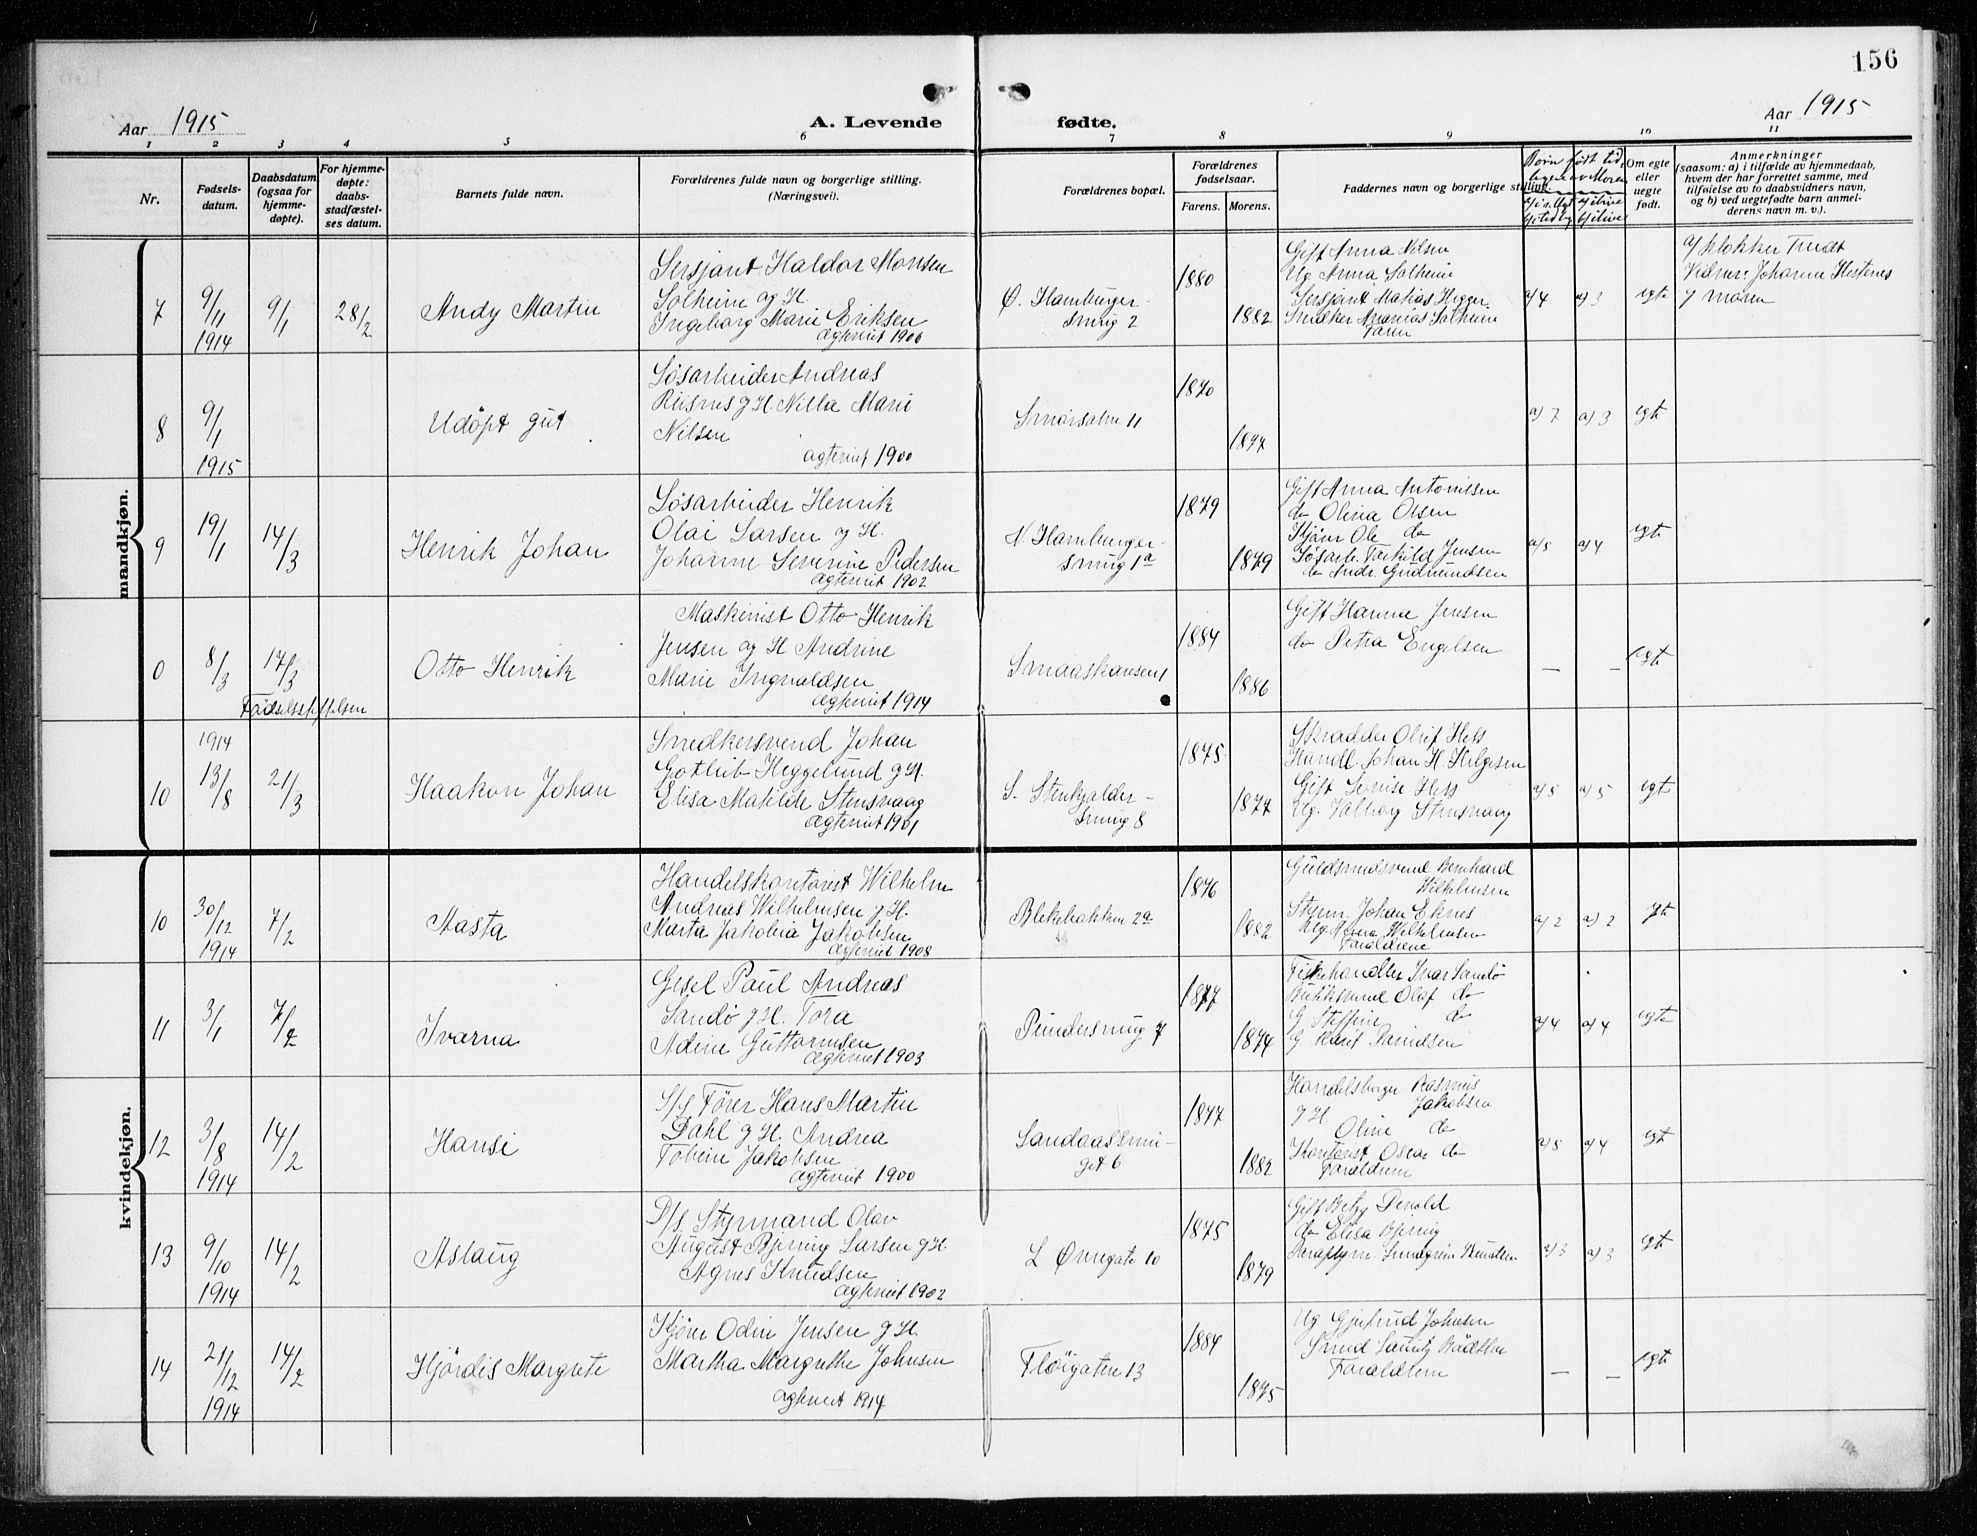 156
Aar 1915
A. Levende fødte.
Aar 1915
1 2 3 4 5 6 7 8 9 10 11
Nr.
Fødsels-
datum.
Daabsdatum
(ogsaa for
hjemme-
døpte).
For hjemme-
døpte:
daabs-
stadfæstel-
ses datum.
Barnets fulde navn.
Forældrenes fulde navn og borgerlige stilling.
(Næringsvei).
Forældrenes bopæl.
Forældrenes
fødselsaar.
Farens. Morens.
Faddernes navn og borgerlige stilling.
Børn født tid-
ligere av Moren
Om egte
eller
uegte
født.
Anmerkninger
(saasom: a) i tilfælde av hjemmedaab,
hvem der har forrettet samme, med
tilføielse av to daabsvidners navn,
og b) ved uegtefødte barn anmel-
derens navn m. v.).
mandkjøn.
7
9/11
1914
9/1
28/2
Andy Martin
Sersjant Haldor Monsen
Solheim og H.
Ingeborg Marie Eriksen
Ø. Hamburger-
smug 2
1880
1882
Gift Anna Nilsen
Ug Anna Solheim
Sersjant Matias Hegger
Snidker Ananias Solheim
Faren
a/4 a/3
egte
a/ klokker
Vidner: Johanne Hestenes
g moren
8
9/1
1915
Udøpt gut
Løsarbeider Andreas
Risnes g H. Nilla Marie
Nilsen
1900
11
1870
a/7 a/3
egte
9
19/1
14/3
Henrik Johan
Løsarbeider Henrik
Olai Larsen og H.
Johanne Severine Pedersen
1902
N. Hamburger-
smug 1a
1879
1879
Gift Anna Antonilsen
do Olina Olsen
Kjører Ole do
Løsarb. Jensen
do Andr. Gudmundsen
a/5 a/4
egte
0
8/3
17/3
Fødselsstiftelsen
Otto Henrik
Maskinist Otto Henrik
Jensen og H Andrine
Marie Ingvaldsen
1914
1884
1886
Gift Hanna Jensen
do Petra Engelsen
— —
egte
10
1914
13/8
21/3
Haakon Johan
Snedkersvend Johan
Gotlieb Heggelund g H.
Elisa Matilde Stensvaag
1901
S. Stenkjelder-
smug 8
1875
1877
Skrædder Olaf Hess
Handl. Johan H. Helgesen
Gift Lovise Hess
Ug. Valborg Stensvaag
a/5 a/5
egte
kvindekjøn.
10
30/12
1914
7/2
Aasta
Handelskontorist Wilhelm
Andreas Wilhelmsen g H.
Marta Jakobia Jakobsen
1908
Blekebakken 2a
1876
1882
Guldsmedsvend Bernhard
Wilhelmsen
Styrm. Johan Eknes
Wilhelmsen
Forældrene
a/2 a/2
egte
11
3/1
7/2
Ivarna
Paul Andreas
Sandø g H. Tora
Adine Guttormsen
1903
Pindersmug 7
1877
1874
Fiskehandler Ivar Sandø
Olaf do
G Steffine do
a/4 a/4
egte
12
3/8
1914
14/2
Hansi
S/S Fører Hans Martin
Dahl g H. Andrea
Jakobsen
1900
Sandaassmu-
get 6
1877
1882
Handelsborger Rasmus
g H Jakobsen
Oline do
Kontorist Oscar do
Forældrene
a/5 a/4
egte
13
9/10
1914
14/2
Aslaug
D/S Styrmand Olav
August Bjering Larsen g H
Agnes Knudsen
1902
L. Øvregate 10
1875
1879
do Elisa Bjering
a/3 a/3
egte
14
21/12
1914
14/2
Hjørdis Margrete
Kjører Odin Jensen g H.
Martha Margrethe Johnsen
1914
Fløigaten 13
1884
1875
Ug Gjertrud Johnsen
Forældrene
— —
egte